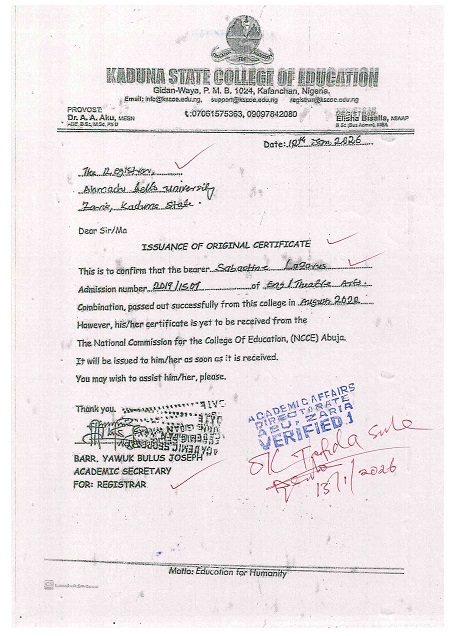 KADUNA STATE COLLEGE OF EDUCATION
Gidan-Waya, P. M. B. 1024, Kafanchan, Nigeria.
Email: info@kscoe.edu.ng, support@kscoe.edu.ng registrar@kscoe.edu.ng
PROVOST:
Dr. A. A. Aku, MESN
07061575363, 09097842080
REGISTRAR:
Elisha Bisalla,
Date: 12th Jan 2026
The Registrar,
Ahmadu Bello University
Zaria, Kaduna State.
Dear Sir/Ma
ISSUANCE OF ORIGINAL CERTIFICATE
This is to confirm that the bearer Sabastine Lazarus
Admission number 2019/1509 of Eng/Theatre Arts.
Combination, passed out successfully from this college in August 2022
However, his/her certificate is yet to be received from the
The National Commission for the College Of Education, (NCCE) Abuja.
It will be issued to him/her as soon as it is received.
You may wish to assist him/her, please.
Thank you.
BARR. YAWUK BULUS JOSEPH
ACADEMIC SECRETARY
FOR: REGISTRAR
ACADEMIC AFFAIRS
DIRECTORATE
ABU, ZARIA
VERIFIED 1
OK
13/1/2026
Motto: Education for Humanity